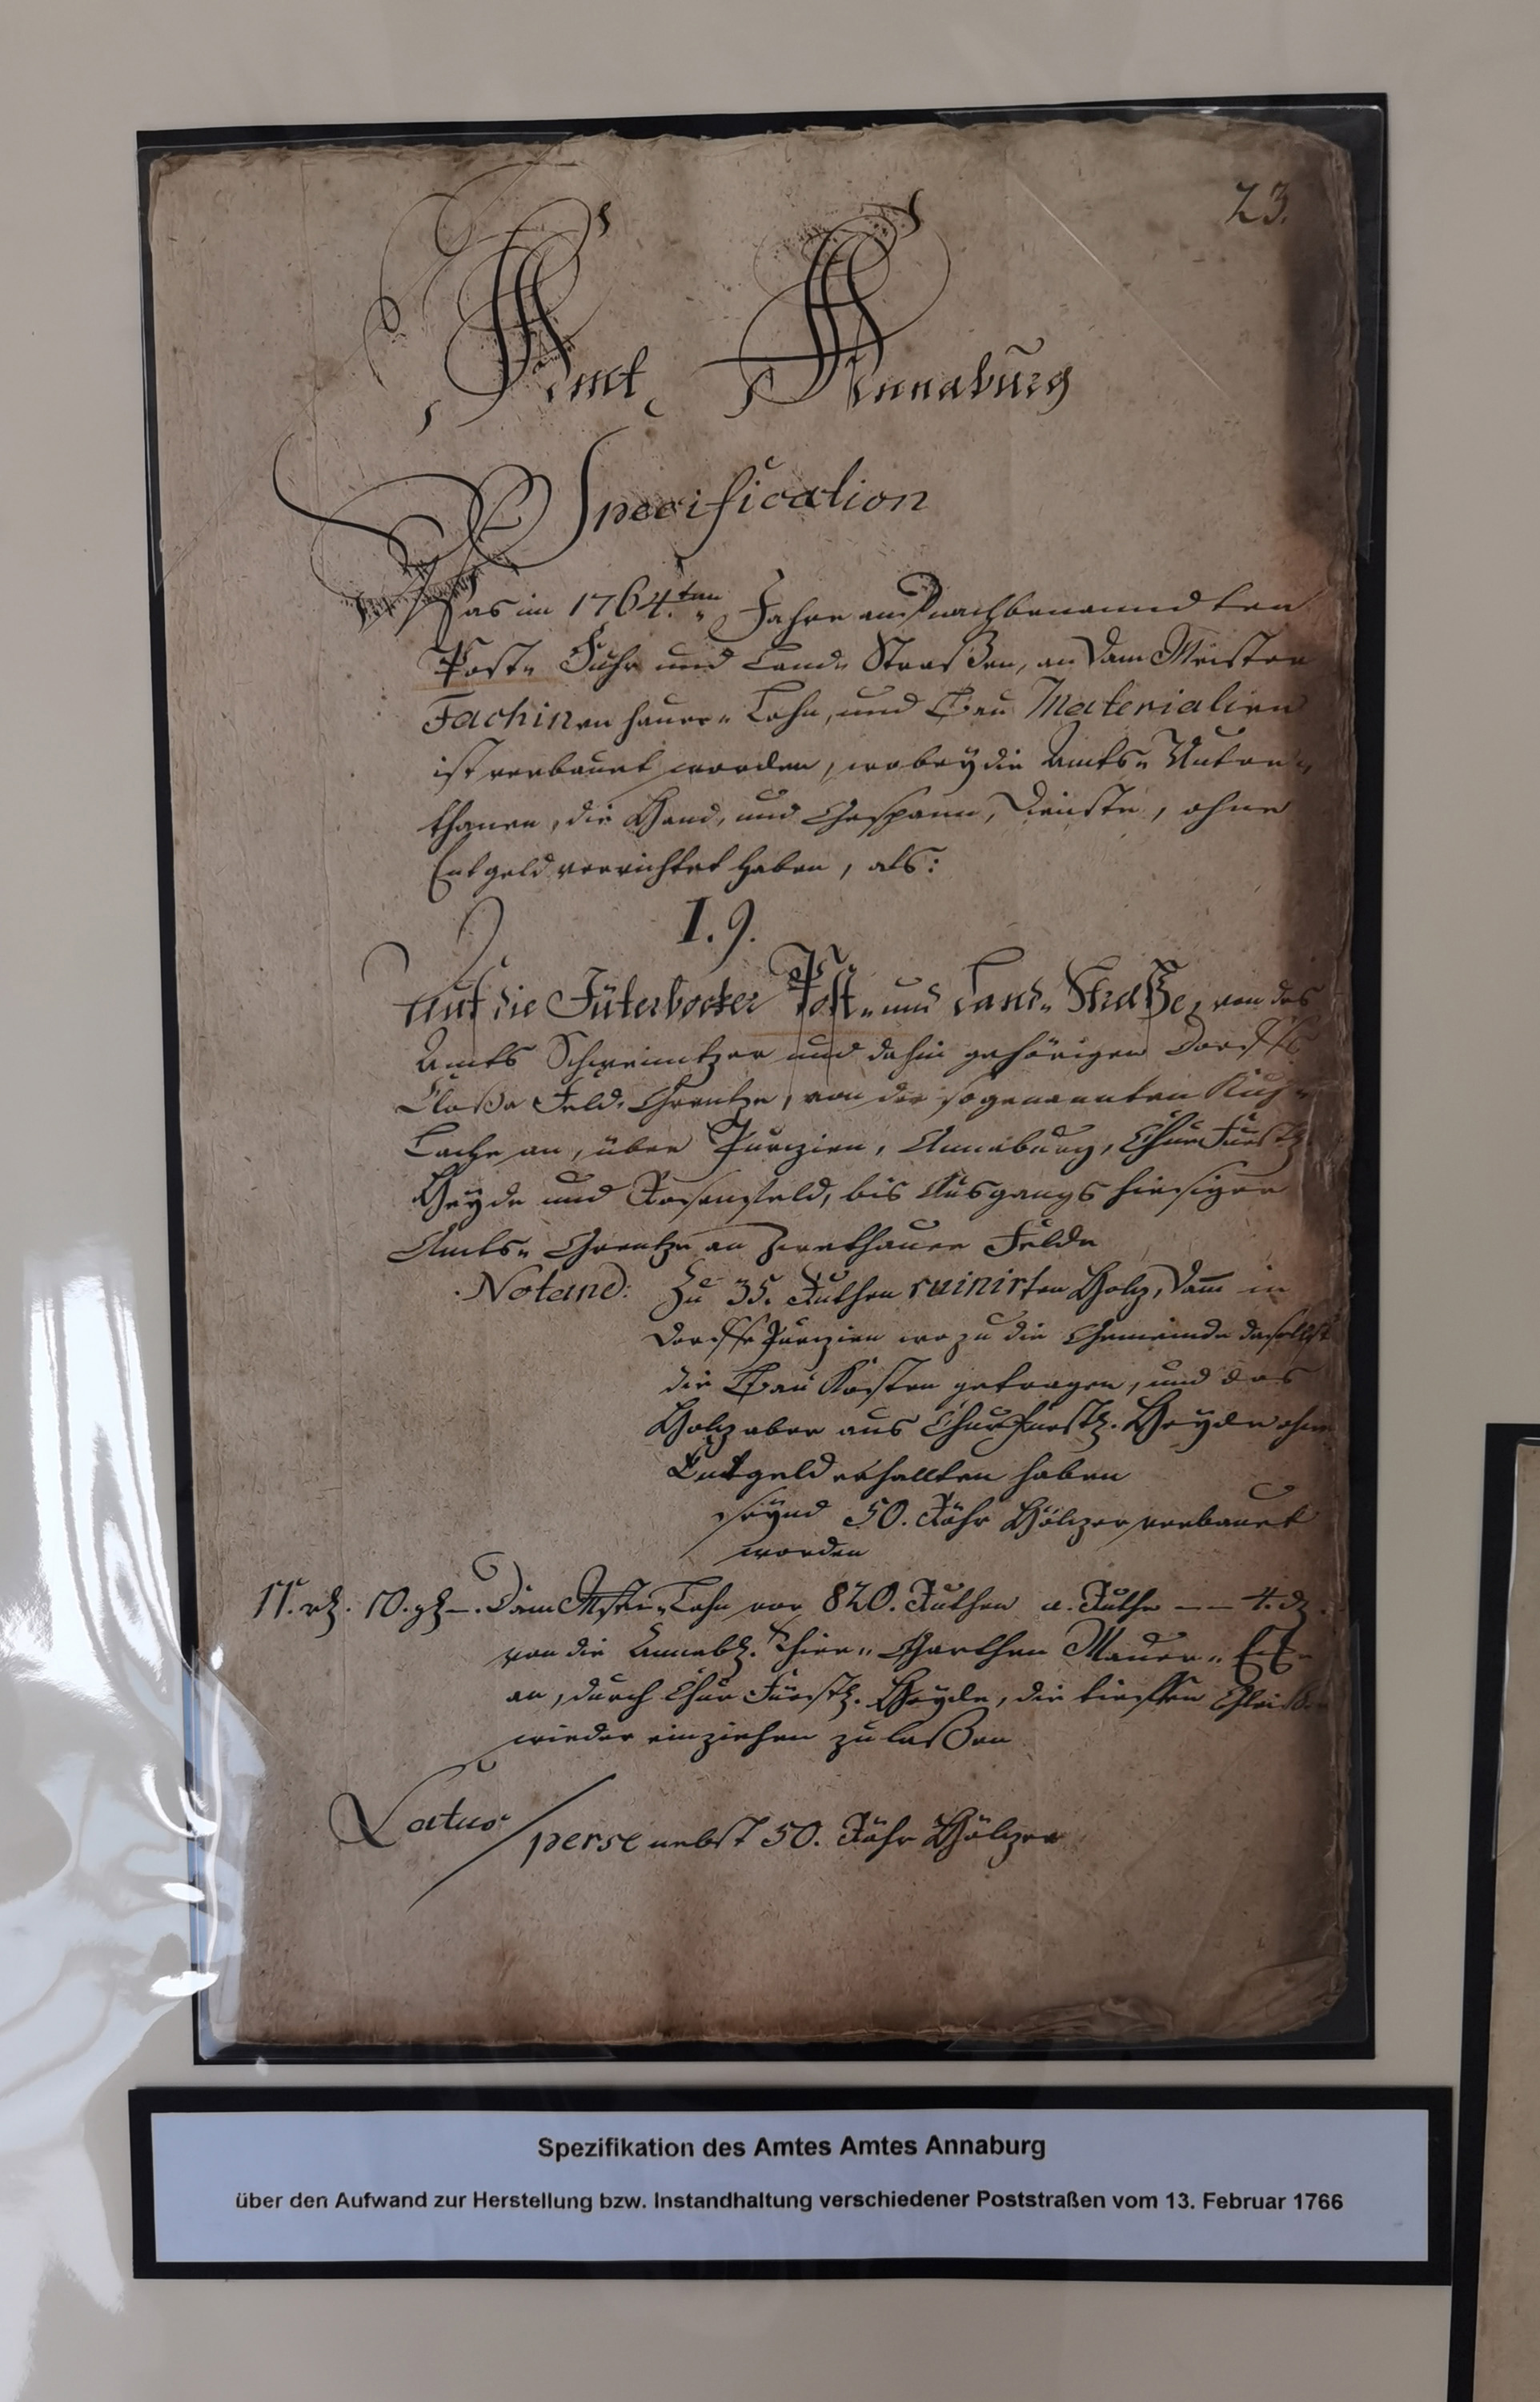 23.
Amt Annaburg
Specification
Was im 1764.ten Jahre auf nachbenanndten
Post- Fuhr und Land- Straßen, an dem Meister
Fachinen hauer- Lohn, und Bau Materialien
ist verbauet worden, wobey die Amts- Unter-
thanen, die Hand, und Gespann, Dienste, ohne
Entgeld verrichtet haben, als:
I. 9.
Auf die Jüterbocker Post- und Land- Straße, von des
Amts Schweinitzer und dahin gehörigen Dorffs
Cloßa Feld- Grentze, von der sogenannten Kuh-
Lache an, über Purzien, Annaburg, ChurFürstl.
Heyde und Rosenfeld, bis Ausgangs hiesiger
Amts- Grentze an Zwethauer Felde
Notand: Zu 35. Ruthen ruinirten Holz, Dam in
Dorffe Purzien wozu die Gemeinde daselbst
die Bau Kosten getragen, und das
Holz aber aus ChurFürstl. Heyde ohne
Entgeld erhallten haben
seynd 50. Röhr Hölzer verbauet
worden
11. rl. 10. gl. —. Dem Mstr. Lohn vor 820. Ruthen a. Ruthe — — 4. d.
von die Annabl. Thier- Garthen Mauer- Ecke
an, durch Chur Fürstl. Heyde, die tieffen Gleiße
wieder einziehen zu laßen
Latus
perse nebst 50. Röhr Hölzer
Spezifikation des Amtes Amtes Annaburg
über den Aufwand zur Herstellung bzw. Instandhaltung verschiedener Poststraßen vom 13. Februar 1766